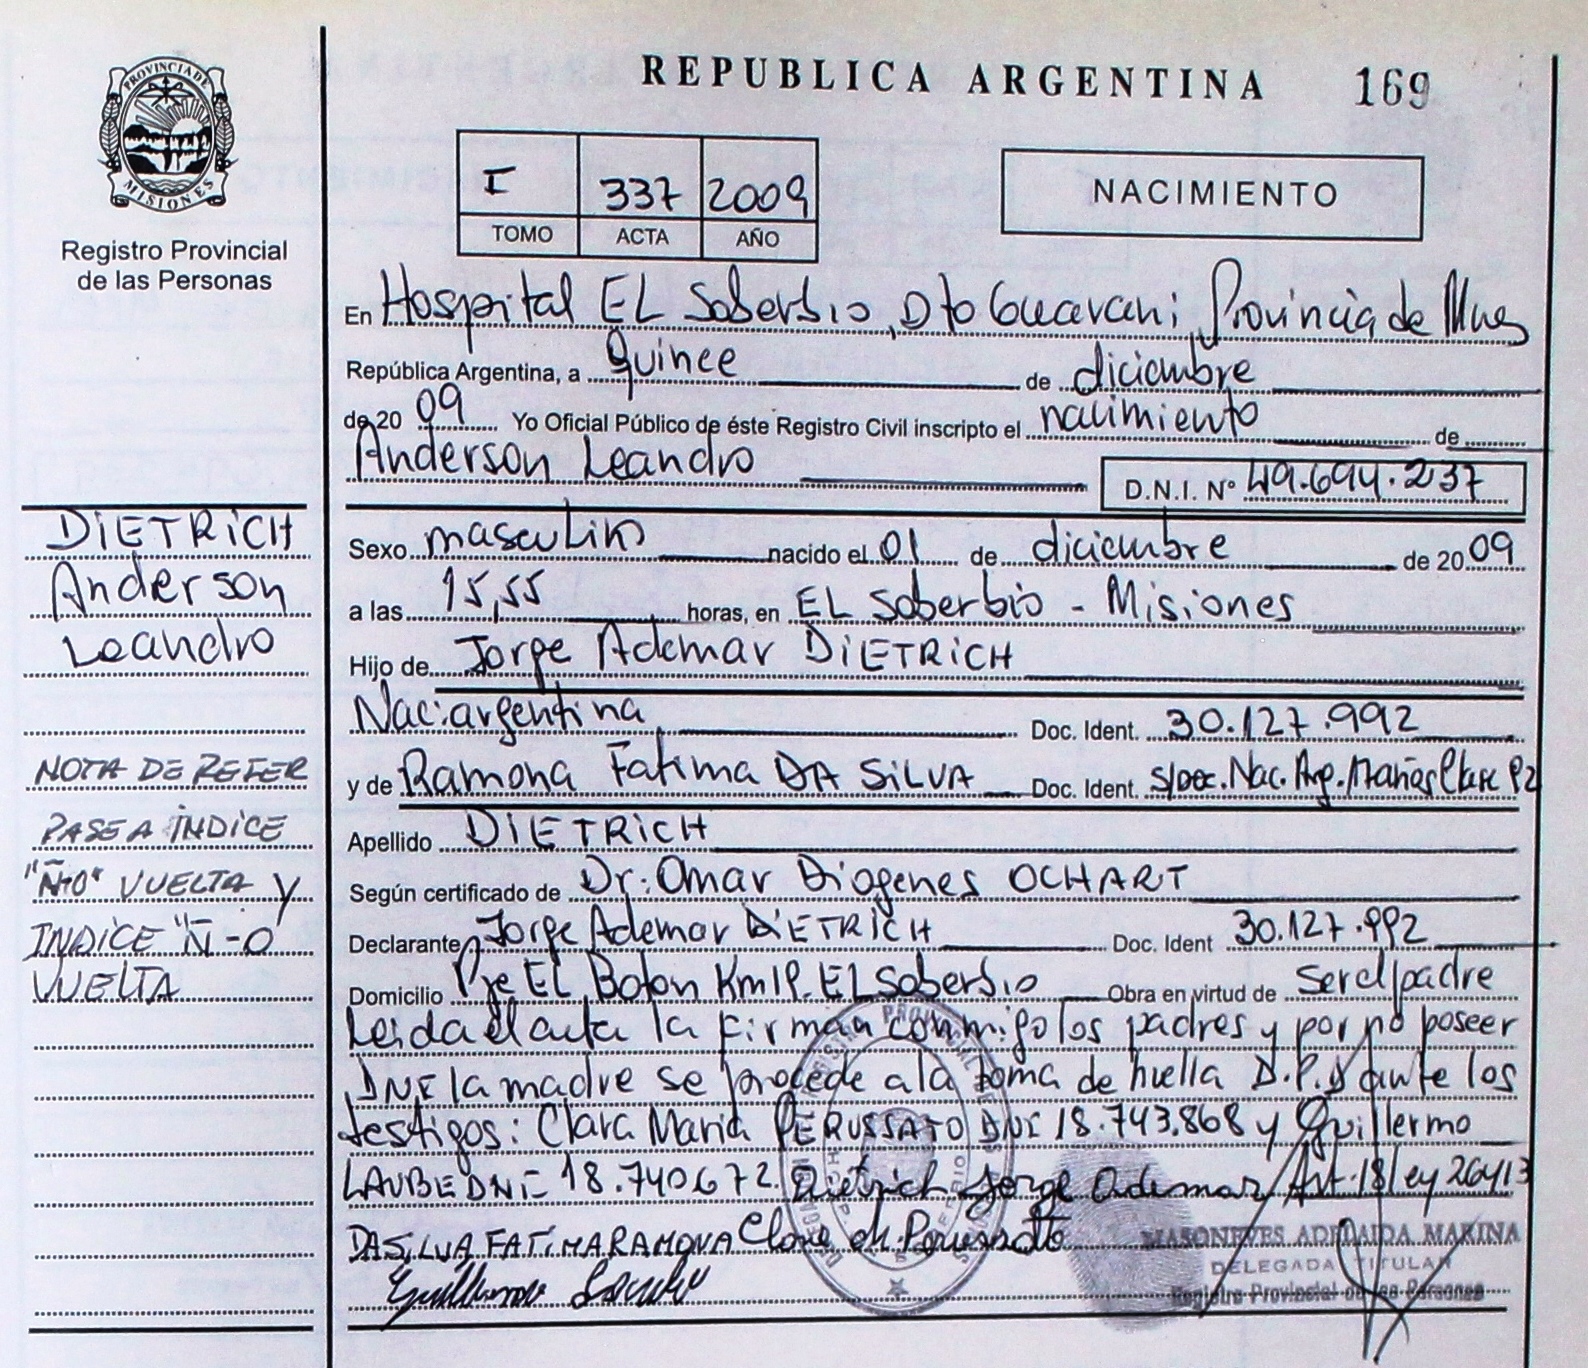 PROVINCIA DE
MISIONES
Registro Provincial
de las Personas
REPUBLICA ARGENTINA 169
I 337 2009
TOMO ACTA AÑO
NACIMIENTO
En Hospital EL Soberbio, Dto Guarani Provincia de Mnes
República Argentina, a quince de diciembre
de 20 09 Yo Oficial Público de éste Registro Civil inscripto el nacimiento de
Anderson Leandro D.N.I. Nº 49.694.237
Sexo masculino nacido el 01 de diciembre de 20 09
a las 15,55 horas, en EL Soberbio - Misiones
Hijo de Jorge Ademar DIETRICH
Nac: argentina Doc. Ident. 30.127.992
y de Ramona Fatima DA SILVA Doc. Ident. s/Doc. Nac. Arg.
Apellido DIETRICH
Según certificado de Dr: Omar Diogenes OCHART
Declarante Jorge Ademar DIETRICH Doc. Ident 30.127.992
Domicilio Pje EL Boton Km EL Soberbio Obra en virtud de ser el padre
Leida el acta la firman conmigo los padres y por no poseer
DNI la madre se procede a la toma de huella D.P.D ante los
testigos: Clara Maria PERUSSATO DNI 18.743.868 y Guillermo
LAUBE DNI 18.740672. Dietrich Jorge Ademar Art. 18 ley 26413
DA SILVA FATIMA RAMONA
MASONEVES ADELAIDA MARINA
DELEGADA TITULAR
Registro Provincial de las Personas
DIETRICH
Anderson
Leandro
NOTA DE REFER
PASE A INDICE
"Ñ-O" VUELTA y
INDICE "Ñ-O"
VUELTA